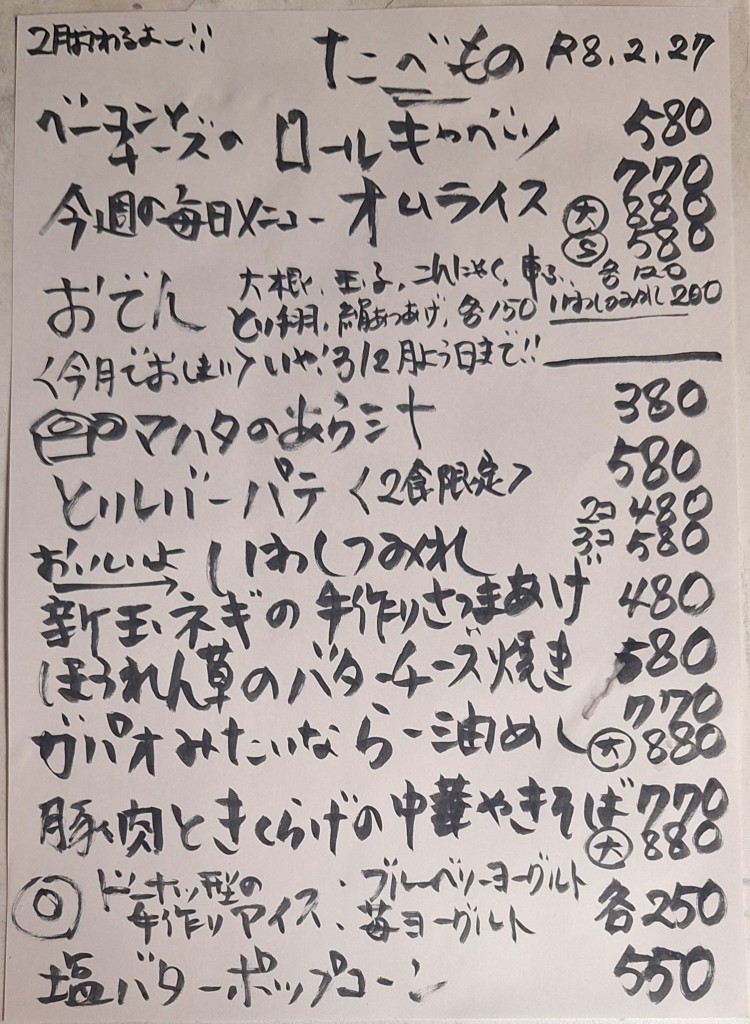 2月おわるよー!!
たべもの R8.2.27
ベーコンとチーズの ロールキャベツ 580
今週の毎日メニュー オムライス 770
大 880
S 580
おでん 大根、玉子、こんにゃく、車ふ、各120
とり手羽、絹あつあげ、各150 いわしつみれ 200
〈今月でおしまい〉いや!3/2月よう日まで!!
マハタのあら汁 380
とりレバーパテ〈2食限定〉 580
おいしいよ いわしつみれ 2コ 480
3コ 580
新玉ネギの手作りさつまあげ 480
ほうれん草のバターチーズ焼き 580
ガパオみたいならー油めし 770
大 880
豚肉ときくらげの中華やきそば 770
大 880
ドーナッツ型の手作りアイス・ブルーベリーヨーグルト
・苺ヨーグルト 各250
塩バターポップコーン 550